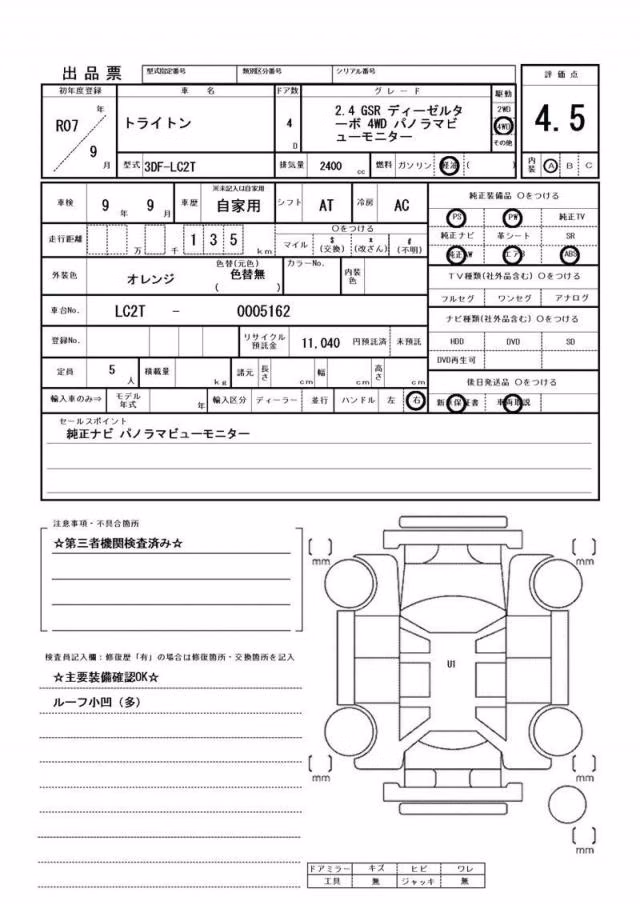 出品票 型式指定番号 類別区分番号 シリアル番号
評価点
4.5
初年度登録 車名 ドア数 グレード 駆動
R07 年 9 月
トライトン
4 D
2.4 GSR ディーゼルタ
ーボ 4WD パノラマビ
ューモニター
2WD
4WD
その他
型式 3DF-LC2T 排気量 2400 cc 燃料 ガソリン 軽油 ( )
内装 A B C
車検 9 年 9 月 車歴 ※未記入は自家用 自家用 シフト AT 冷房 AC
走行距離 万 千 1 3 5 km
○をつける
マイル $ (交換) x (改ざん) # (不明)
外装色 オレンジ 色替(元色) 色替無 ( ) カラーNo. 内装色
車台No. LC2T - 0005162
登録No. リサイクル預託金 11,040 円預託済 未預託
定員 5 人 積載量 kg 諸元 長さ cm 幅 cm 高さ cm
輸入車のみ⇒ モデル年式 年 輸入区分 ディーラー 並行 ハンドル 左 右
純正装備品 ○をつける
PS PW 純正TV
純正ナビ 革シート SR
純正AW エアB ABS
TV種類(社外品含む) ○をつける
フルセグ ワンセグ アナログ
ナビ種類(社外品含む) ○をつける
HDD DVD SD
DVD再生可
後日発送品 ○をつける
新車保証書 車両取説
セールスポイント
純正ナビ パノラマビューモニター
注意事項・不具合箇所
☆第三者機関検査済み☆
検査員記入欄：修復歴「有」の場合は修復箇所・交換箇所を記入
☆主要装備確認OK☆
ルーフ小凹（多）
mm
mm
U1
mm
mm
mm
ドアミラー キズ ヒビ ワレ
工具 無 ジャッキ 無